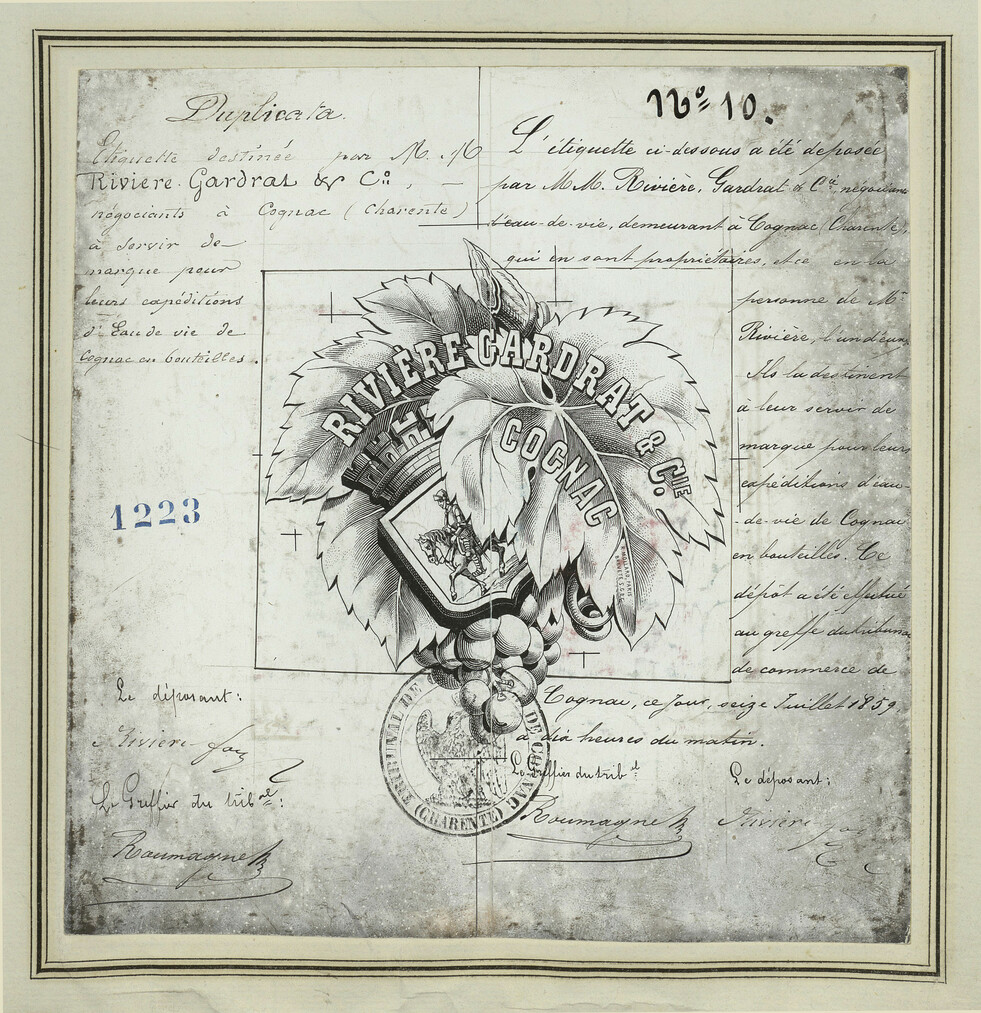 Duplicata.
Etiquette destinée par M. M
Rivière. Gardrat & Cie, —
négociants à Cognac (Charente)
à servir de
marque pour
leurs expéditions
d'Eau de vie de
Cognac en bouteilles.
1223
Le déposant:
Rivière
Le Greffier du tribal:
Roumagne
No 10.
L'étiquette ci-dessous a été déposée
par M.M. Rivière, Gardrat & Cie, négociants
d'eau-de-vie, demeurant à Cognac (Charente),
qui en sont propriétaires, et ce en la
personne de Mr
Rivière, l'un d'eux.
Ils la destinent
à leur servir de
marque pour leurs
expéditions d'eau-
-de-vie de Cognac
en bouteilles. Ce
dépôt a été effectué
au greffe du tribunal
de commerce de
Cognac, ce jour, seize Juillet 1859,
à dix heures du matin.
Le Greffier du tribal
Roumagne
Le déposant:
Rivière
RIVIÈRE GARDRAT & CIE.
COGNAC
TRIBUNAL DE COMMERCE DE COGNAC (CHARENTE)